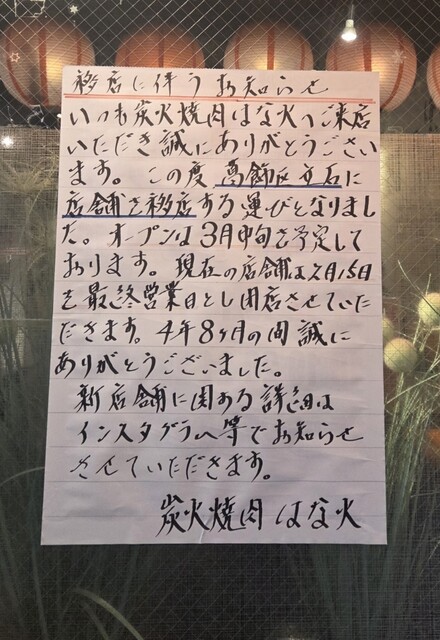 移店に伴うお知らせ
いつも炭火焼肉はな火へご来店
いただき誠にありがとうござい
ます。この度 葛飾区立石に
店舗を移店する運びとなりまし
た。オープンは3月中旬を予定して
おります。現在の店舗は2月15日
を最終営業日とし閉店させていた
だきます。4年8ヶ月の間誠に
ありがとうございました。
新店舗に関する詳細は
インスタグラム等でお知らせ
させていただきます。
炭火焼肉 はな火